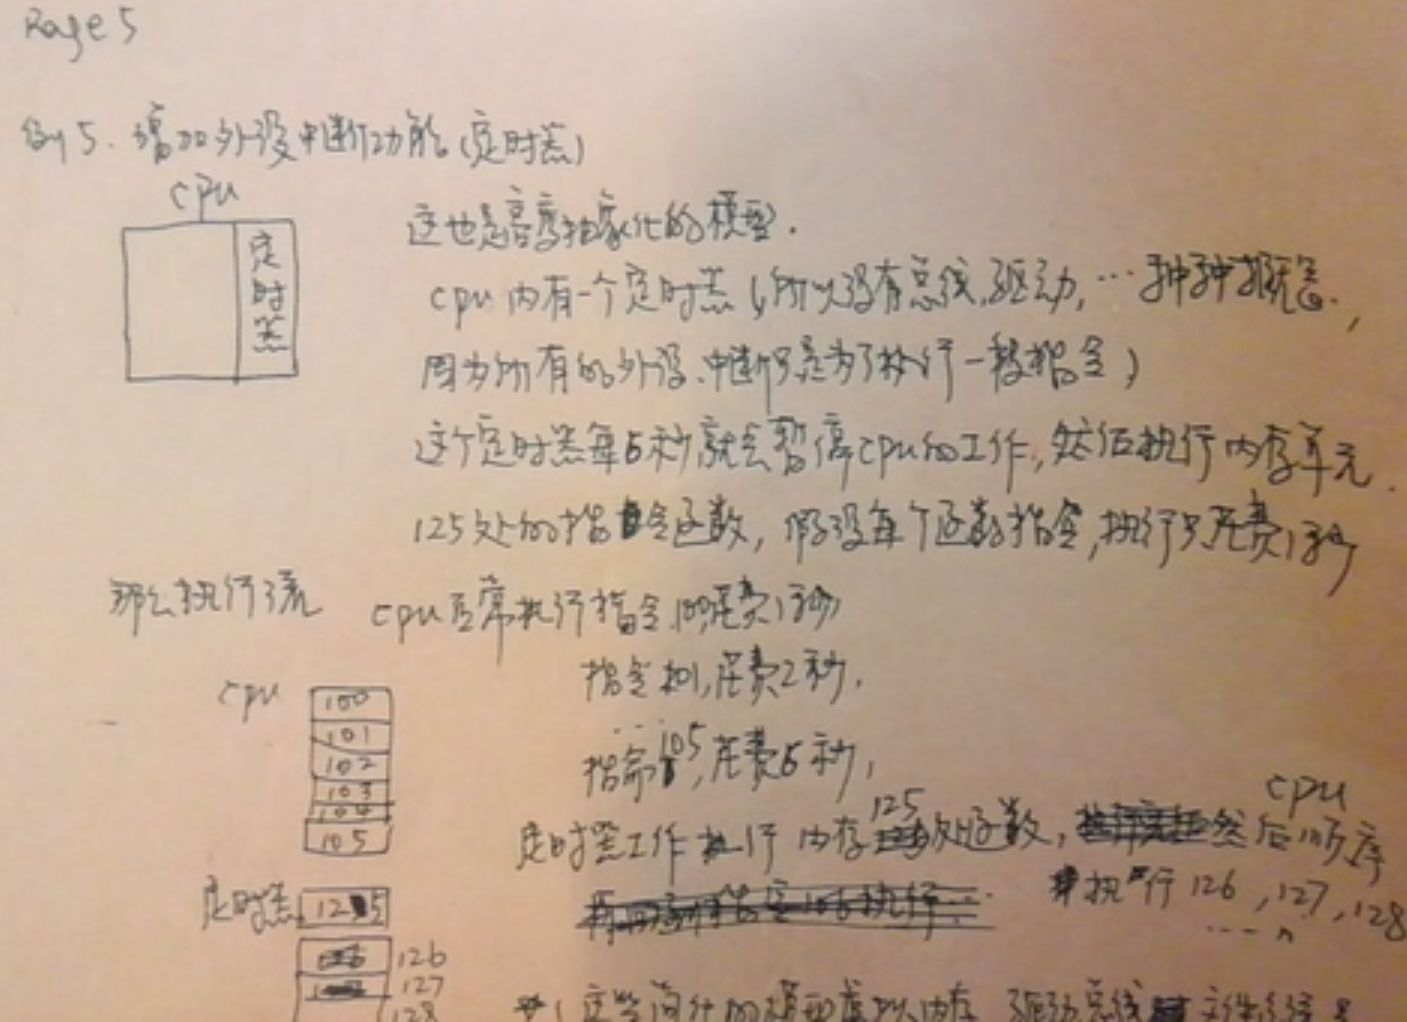 Page 5
例5. 增加外设中断功能(定时器)
cpu
定时器
这也是高度抽象化的模型.
cpu内有一个定时器(所以没有总线,驱动,…种种概念.,
因为所有的外设、中断只是为了执行一段指令)
这个定时器每5秒就会暂停cpu的工作,然后执行内存单元.
125处的指令函数,假设每个函数指令,执行只花费1秒
那么执行流 cpu正常执行指令100,花费1秒
指令101,花费2秒.
cpu
100
101
102
103
104
105
……
指令105,花费5秒,
定时器工作执行内存125处函数, 然后cpu顺序
执行 126, 127, 128
…… n
定时器 125
126
127
128